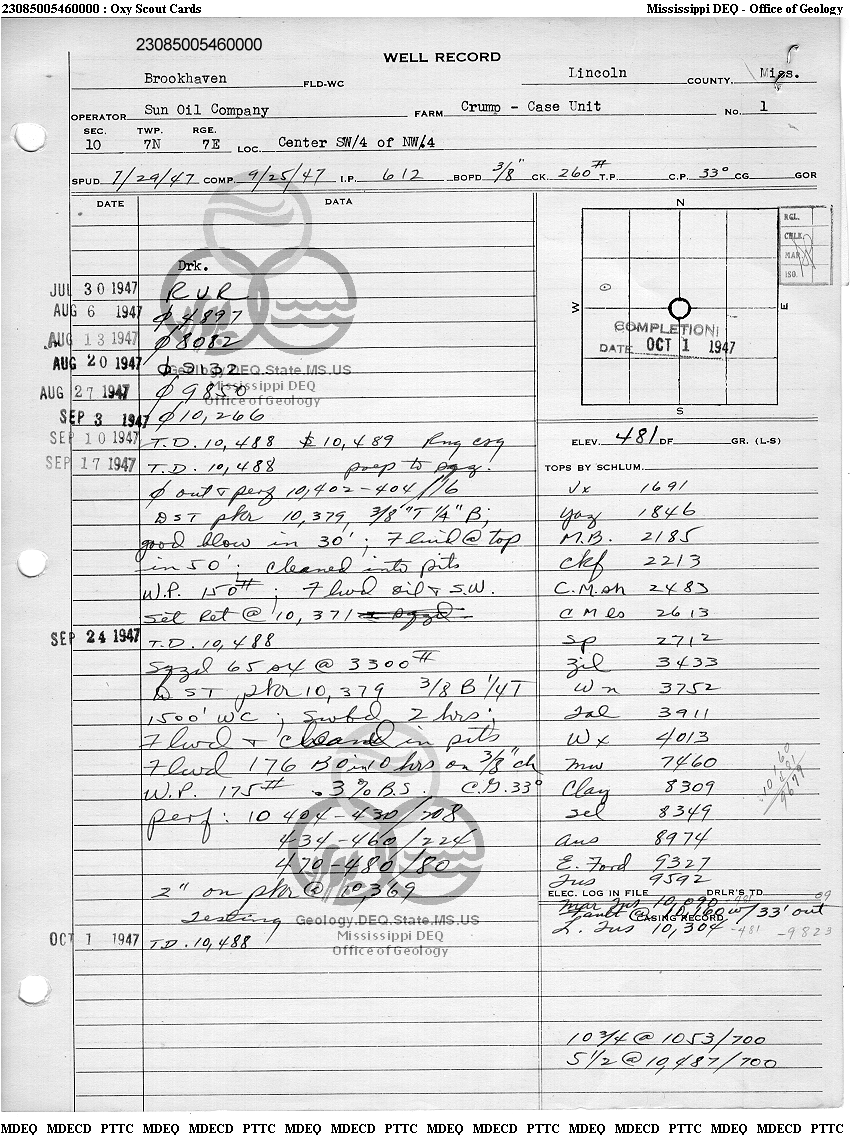 23085005460000 : Oxy Scout Cards
Mississippi DEQ - Office of Geology
23085005460000
WELL RECORD
Brookhaven FLD-WC Lincoln COUNTY, Miss.
OPERATOR Sun Oil Company FARM Crump - Case Unit NO. 1
SEC. TWP. RGE.
10 7N 7E LOC. Center SW/4 of NW/4
SPUD 7/29/47 COMP. 9/25/47 I.P. 612 BOPD 3/8" CK. 260# T.P. C.P. 33° CG GOR
DATE DATA
Drk.
JUL 30 1947 RUR
AUG 6 1947 ϕ 4897
AUG 13 1947 ϕ 8082
AUG 20 1947
AUG 27 1947 ϕ 9850
SEP 3 1947 ϕ 10,266
SEP 10 1947 T.D. 10,488 10,489 Rng csg
SEP 17 1947 T.D. 10,488 prep to sqz.
ϕ out & perf 10,402-404/16
DST pkr 10,379, 3/8" T 1/4" B;
good blow in 30'; Fluid @ top
in 50'; cleaned into pits
W.P. 150#; Flwd oil & S.W.
Set Ret @ 10,371
SEP 24 1947 T.D. 10,488
Sqzd 65 sx @ 3300#
DST pkr 10,379 3/8 B 1/4 T
1500' WC; Swbd 2 hrs;
Flwd & cleaned in pits
Flwd 176 BO in 10 hrs on 3/8" ch
W.P. 175# .3% B.S. C.G. 33°
perf: 10 404-430/208
434-460/224
470-480/80
2" on pkr @ 10,369
Testing
OCT 1 1947 T.D. 10,488
N
W
E
S
RGL.
CHLK.
MAR.
ISO.
COMPLETION
DATE OCT 1 1947
ELEV. 481 DF GR. (L-S)
TOPS BY SCHLUM.
Vx 1691
Yaz 1846
M.B. 2185
Ckf 2213
C.M. sh 2483
C M ls 2613
Sp 2712
Zil 3433
Wn 3752
Sal 3911
Wx 4013
Mw 7460
Clay 8309
Sel 8349
Aus 8974
E. Ford 9327
Tus 9592
ELEC. LOG IN FILE DRLR'S TD
Mar Tus 10,090 -481
Fault @ 10,160 w/ 33' out
CASING RECORD
L. Tus 10,304 -481 -9823
10 3/4 @ 1053/700
5 1/2 @ 10,487/700
Geology.DEQ.State.MS.US
Mississippi DEQ
Office of Geology
Geology.DEQ.State.MS.US
Mississippi DEQ
Office of Geology
MDEQ MDECD PTTC MDEQ MDECD PTTC MDEQ MDECD PTTC MDEQ MDECD PTTC MDEQ MDECD PTTC MDEQ MDECD PTTC